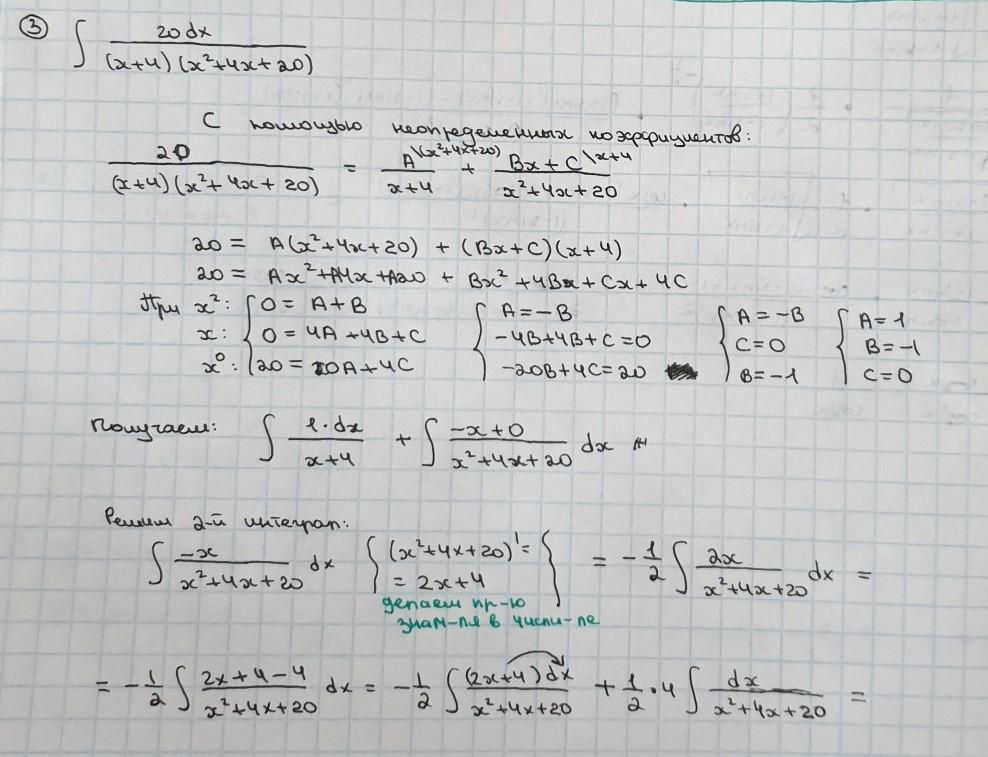 ③ ∫ 20 dx / (x+4)(x²+4x+20)
С помощью неопределенных коэффициентов:
20 / (x+4)(x²+4x+20) = A\(x²+4x+20) / x+4 + Bx+C\x+4 / x²+4x+20
20 = A(x²+4x+20) + (Bx+C)(x+4)
20 = Ax²+A4x+A20 + Bx²+4Bx+Cx+4C
При x²: { 0 = A+B { A=-B { A=-B { A=1
x: 0 = 4A+4B+C -4B+4B+C=0 C=0 B=-1
x⁰: 20 = 20A+4C -20B+4C=20 B=-1 C=0
Получаем: ∫ 1·dx / x+4 + ∫ -x+0 / x²+4x+20 dx
Решим 2-й интеграл:
∫ -x / x²+4x+20 dx { (x²+4x+20)' = = 2x+4 } = -1/2 ∫ 2x / x²+4x+20 dx =
делаем пр-ю
знам-ля в числи-ле
= -1/2 ∫ 2x+4-4 / x²+4x+20 dx = -1/2 ∫ (2x+4)dx / x²+4x+20 + 1/2·4 ∫ dx / x²+4x+20 =